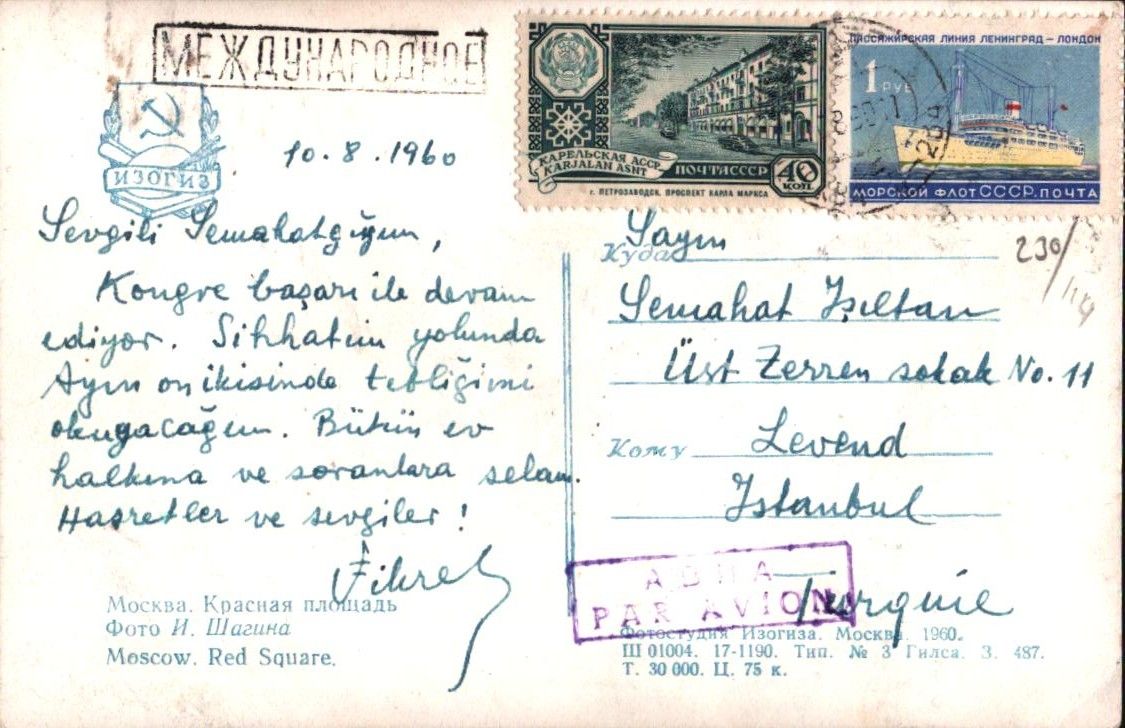 МЕЖДУНАРОДНОЕ
ИЗОГИЗ
10.8.1960
Sevgili Semahatçığım,
Kongre başarı ile devam
ediyor. Sıhhatim yolunda
Ayın on ikisinde tebliğimi
okuyacağım. Bütün ev
halkına ve soranlara selam.
Hasretler ve sevgiler!
Fikret
Москва. Красная площадь
Фото И. Шагина
Moscow. Red Square.
КАРЕЛЬСКАЯ АССР
KARJALAN ASNT
ПОЧТА СССР
40 КОП
г. ПЕТРОЗАВОДСК, ПРОСПЕКТ КАРЛА МАРКСА
ПАССАЖИРСКАЯ ЛИНИЯ ЛЕНИНГРАД – ЛОНДОН
1 РУБ
МОРСКОЙ ФЛОТ СССР. ПОЧТА
230/
Куда Sayın
Semahat Işıltan
Üst Zerren sokak No. 11
Кому Levend
Istanbul
Turquie
АВИА
PAR AVION
Фотостудия Изогиза. Москва. 1960.
Ш 01004. 17-1190. Тип. № 3 Гилса. З. 487.
Т. 30 000. Ц. 75 к.